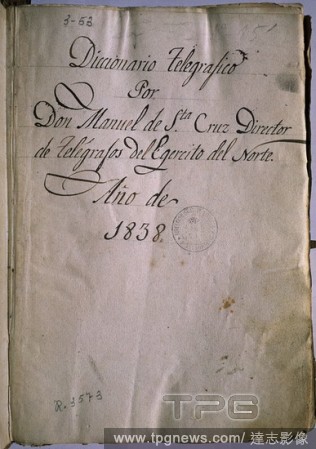 3-53
Diccionario Telegrafico
Por
Don Manuel de S.ta Cruz Director
de telégrafos del Egercito del Norte.
Año de
1838.
R. 3573
TPG
www.tpgnews.com / 達志影像